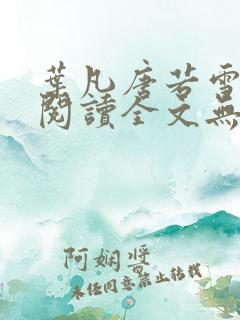 葉凡唐若雪
閱讀全文無
阿嫻醬
未经同意禁止转载